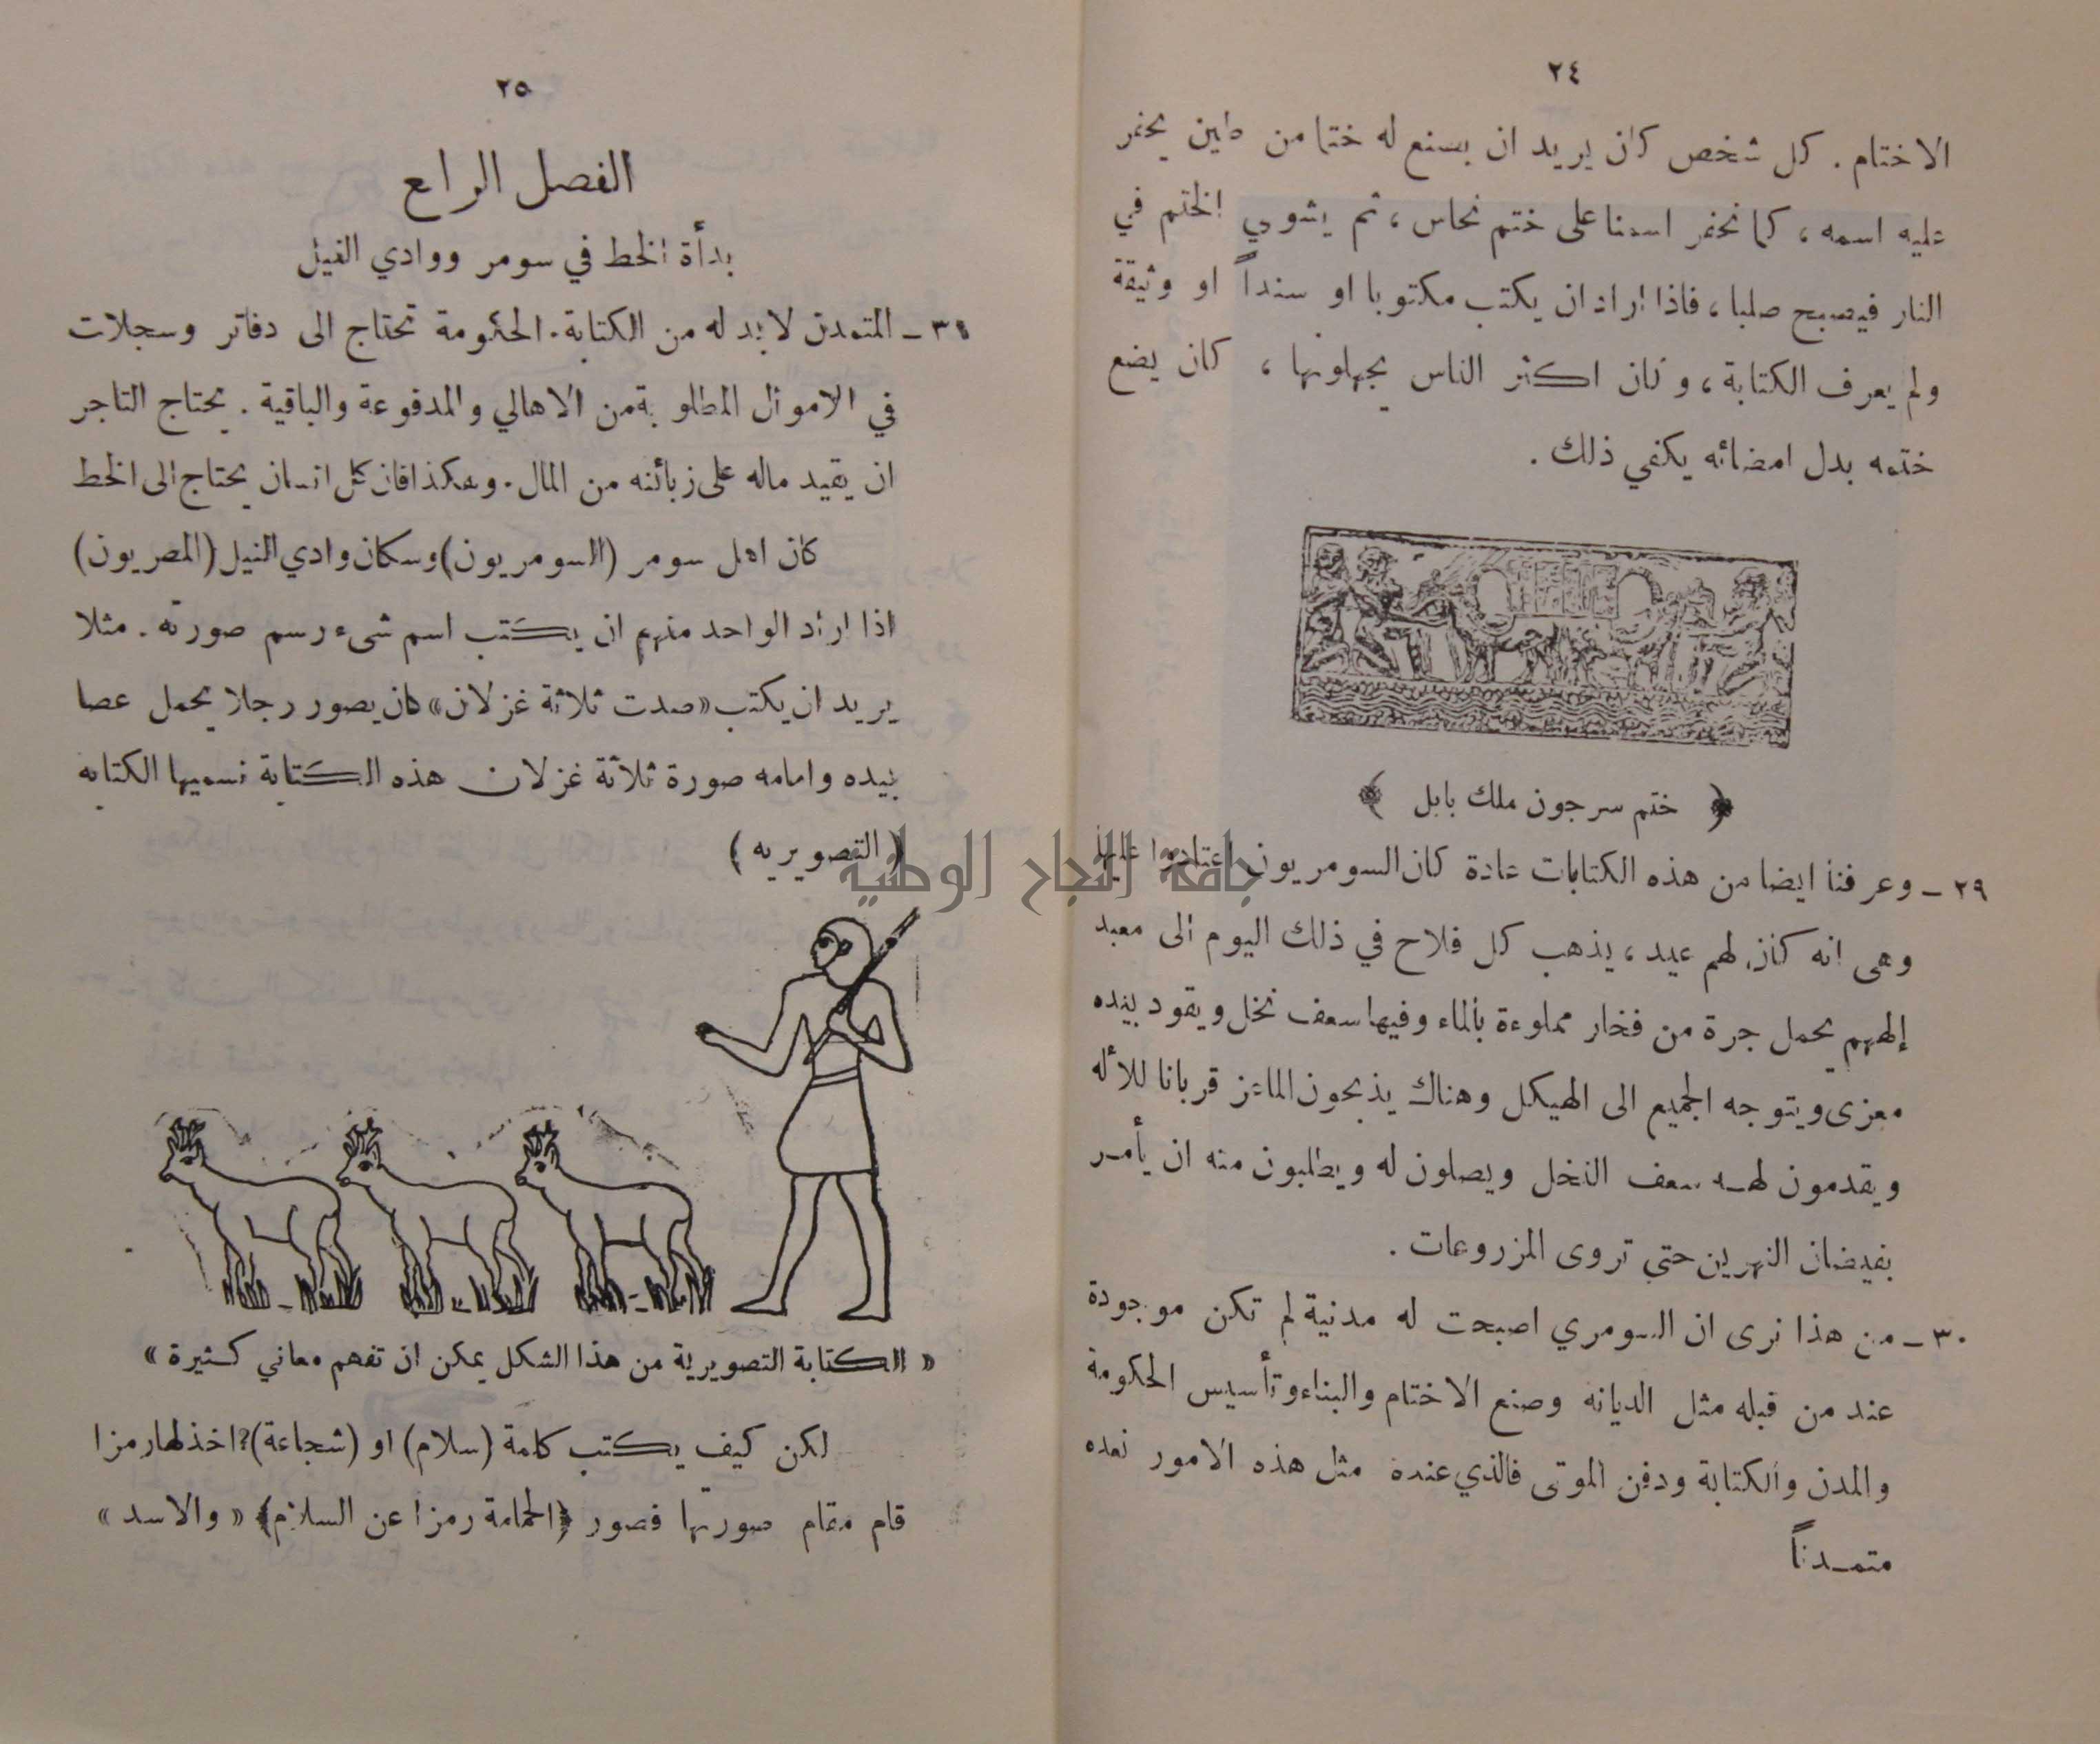 ٢٤
الاختام . كل شخص كان يريد ان يسنع له ختما من طين يحفر
عليه اسمه ، كما نحفر اسمنا على ختم نحاس ، ثم يشوي الختم في
النار فيصبح صلبا ، فاذا اراد ان يكتب مكتوبا او سنداً او وثيقة
ولم يعرف الكتابة ، وكان اكثر الناس يجهلونها ، كان يضع
ختمه بدل امضائه يكفي ذلك .
﴿ ختم سرجون ملك بابل ﴾
٢٩ ـ وعرفنا ايضا من هذه الكتابات عادة كان السومريون اعتادوا عليها
وهى انه كان لهم عيد ، يذهب كل فلاح في ذلك اليوم الى معبد
إلههم يحمل جرة من فخار مملوءة بالماء وفيها سعف نخل ويقود بيده
معزى ويتوجه الجميع الى الهيكل وهناك يذبحون الماعز قربانا للأله
ويقدمون لهـه سعف النخل ويصلون له ويطلبون منه ان يأمـر
بفيضان النهرين حتى تروى المزروعات .
٣٠ ـ من هذا نرى ان السومري اصبحت له مدنية لم تكن موجودة
عند من قبله مثل الديانه وصنع الاختام والبناء وتأسيس الحكومة
والمدن والكتابة ودفن الموتى فالذي عنده مثل هذه الامور نعده
متمـدناً
٢٥
الفصل الرابع
بدأة الخط في سومر ووادي النيل
٣١ ـ المتمدن لا بد له من الكتابة . الحكومة تحتاج الى دفاتر وسجلات
في الاموال المطلوبة من الاهالي والمدفوعة والباقية . يحتاج التاجر
ان يقيد ماله على زبائنه من المال . وهكذا فان كل انسان يحتاج الى الخط
كان اهل سومر (السومريون) وسكان وادي النيل (المصريون)
اذا اراد الواحد منهم ان يكتب اسم شىء رسم صورته . مثلا
يريد ان يكتب «صدت ثلاثة غزلان» كان يصور رجلا يحمل عصا
بيده وامامه صورة ثلاثة غزلان هذه الكتابة نسميها الكتابه
( التصويريه )
« الكتابة التصويرية من هذا الشكل يمكن ان تفهم معاني كثيرة »
لكن كيف يكتب كلمة (سلام) او (شجاعة)؟ اخذ لها رمزا
قام مقام صورتها فصور ﴿الحمامة رمزا عن السلام﴾ « والاسد »
جامعة النجاح الوطنية